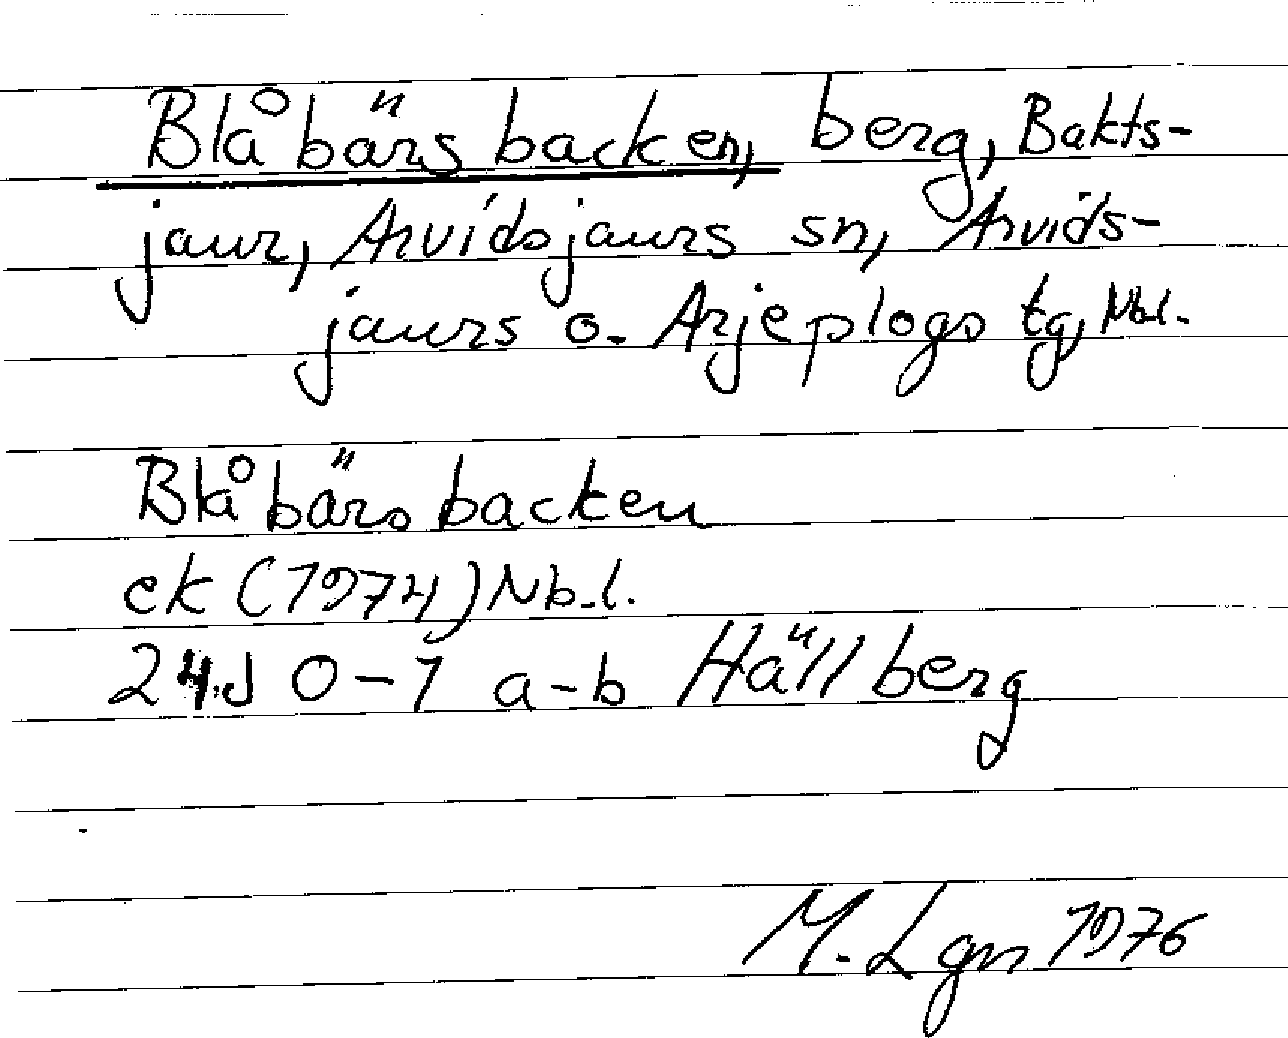 Blåbärsbacken, berg, Bakts-
jaur, Arvidsjaurs sn, Arvids-
jaurs o. Arjeplogs tg, Nbl.
Blåbärsbacken
ek (1974) Nb.l.
24J 0-1 a-b Hällberg
M. Lgn 1976